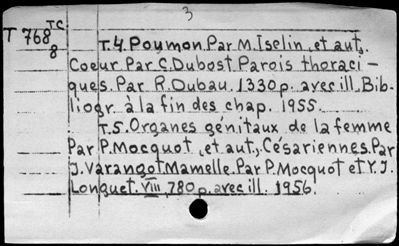 3
T 768 TC
8
T.4. Poumon. Par M. Iselin, et aut.
Coeur Par C. Dubost Parois thoraci-
ques. Par R. Dubau. 1330 p. avec ill. Bib-
liogr. à la fin des chap. 1955.
T.5. Organes génitaux de la femme
Par P. Mocquot, et aut., Césariennes. Par
J. Varangot Mamelle. Par P. Mocquot et Y. J.
Longuet. VIII, 780 p. avec ill. 1956.